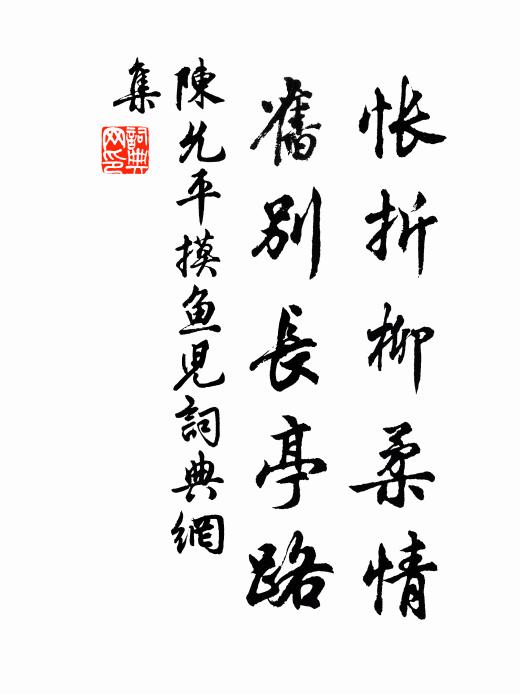 悵折柳柔情
舊別長亭路
陳允平摸鱼兒詞典網
集
詞典
网印